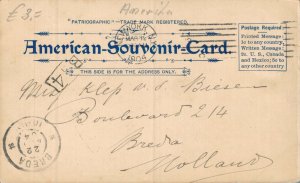 £ 3.=
Amerika
"PATRIOGRAPHIC" - TRADE MARK REGISTERED.
American-Souvenir-Card.
THIS SIDE IS FOR THE ADDRESS ONLY.
Postage Required:
Printed Message:
1c to any country,
Written Message:
2c. U. S., Canada
and Mexico; 5c to
any other country
Boulevard 214
Breda
Holland
BREDA
22